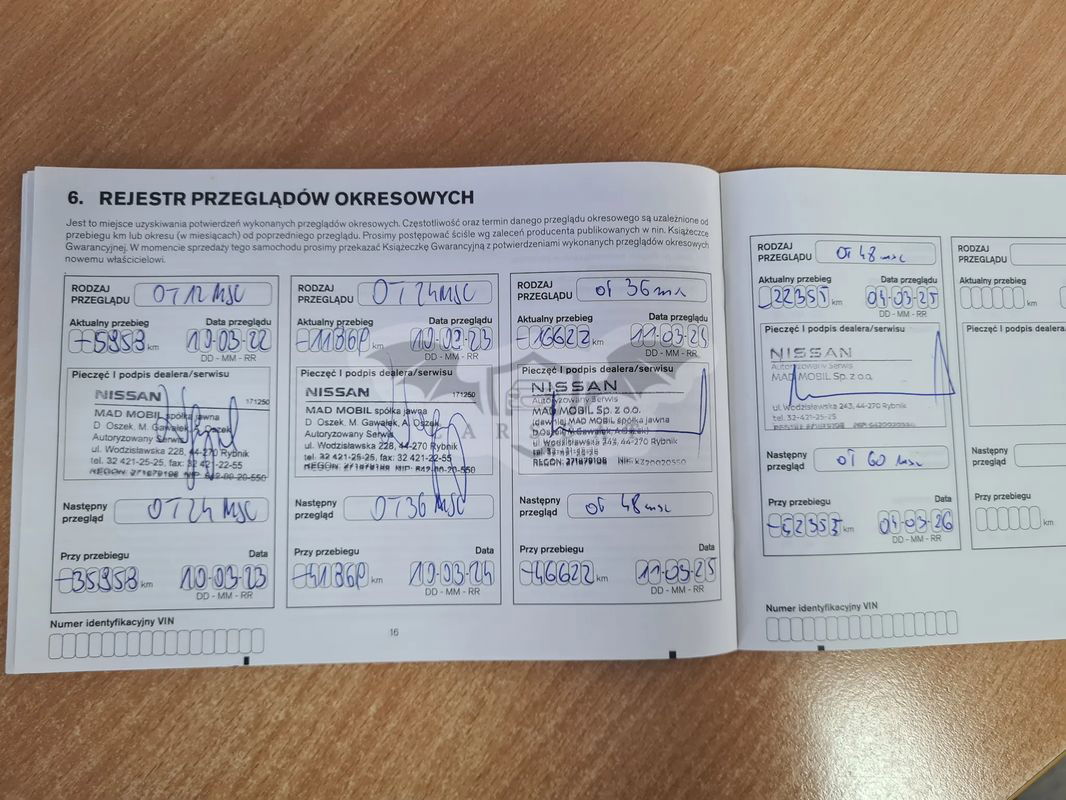 6. REJESTR PRZEGLĄDÓW OKRESOWYCH
Jest to miejsce uzyskiwania potwierdzeń wykonanych przeglądów okresowych. Częstotliwość oraz termin danego przeglądu okresowego są uzależnione od
przebiegu km lub okresu (w miesiącach) od poprzedniego przeglądu. Prosimy postępować ściśle wg zaleceń producenta publikowanych w nin. Książeczce
Gwarancyjnej. W momencie sprzedaży tego samochodu prosimy przekazać Książeczkę Gwarancyjną z potwierdzeniami wykonanych przeglądów okresowych
nowemu właścicielowi.
RODZAJ PRZEGLĄDU OT 12 MSC
Aktualny przebieg Data przeglądu
-5953 km 10-03-22
DD - MM - RR
Pieczęć I podpis dealera/serwisu
NISSAN 171250
MAD MOBIL spółka jawna
D. Oszek, M. Gawałek, A. Oszek
Autoryzowany Serwis
ul. Wodzisławska 228, 44-270 Rybnik
tel. 32 421-25-25, fax: 32 421-22-55
REGON: 271679198 NIP: 642-00-20-550
Następny przegląd OT 24 MSC
Przy przebiegu Data
-35953 km 10-03-23
DD - MM - RR
Numer identyfikacyjny VIN
RODZAJ PRZEGLĄDU OT 24 MSC
Aktualny przebieg Data przeglądu
km
DD - MM - RR
Pieczęć I podpis dealera/serwisu
NISSAN 171250
MAD MOBIL spółka jawna
D. Oszek, M. Gawałek, A. Oszek
Autoryzowany Serwis
ul. Wodzisławska 228, 44-270 Rybnik
tel. 32 421-25-25, fax: 32 421-22-55
REGON: 271679198 NIP: 642-00-20-550
Następny przegląd OT 36 MSC
Przy przebiegu Data
km 10-03-24
DD - MM - RR
RODZAJ PRZEGLĄDU OT 36 msc
Aktualny przebieg Data przeglądu
-16622 km 11-03-24
DD - MM - RR
Pieczęć I podpis dealera/serwisu
NISSAN
Autoryzowany Serwis
MAD MOBIL Sp. z o.o.
(dawniej MAD MOBIL spółka jawna
D.Oszek, M.Gawałek, A.Oszek)
ul. Wodzisławska 243, 44-270 Rybnik
REGON: 271679198 NIP:
Następny przegląd OT 48 msc
Przy przebiegu Data
-46622 km 11-03-25
DD - MM - RR
16
RODZAJ PRZEGLĄDU OT 48 msc
Aktualny przebieg Data przeglądu
-22355 km 04-03-25
DD - MM - RR
Pieczęć I podpis dealera/serwisu
NISSAN
Autoryzowany Serwis
MAD MOBIL Sp. z o.o.
ul. Wodzisławska 243, 44-270 Rybnik
tel. 32-421-25-25
Następny przegląd OT 60 msc
Przy przebiegu Data
-52355 km 04-03-26
DD - MM - RR
Numer identyfikacyjny VIN
RODZAJ PRZEGLĄDU
Aktualny przebieg
km
Pieczęć I podpis dealera
Następny przegląd
Przy przebiegu
km